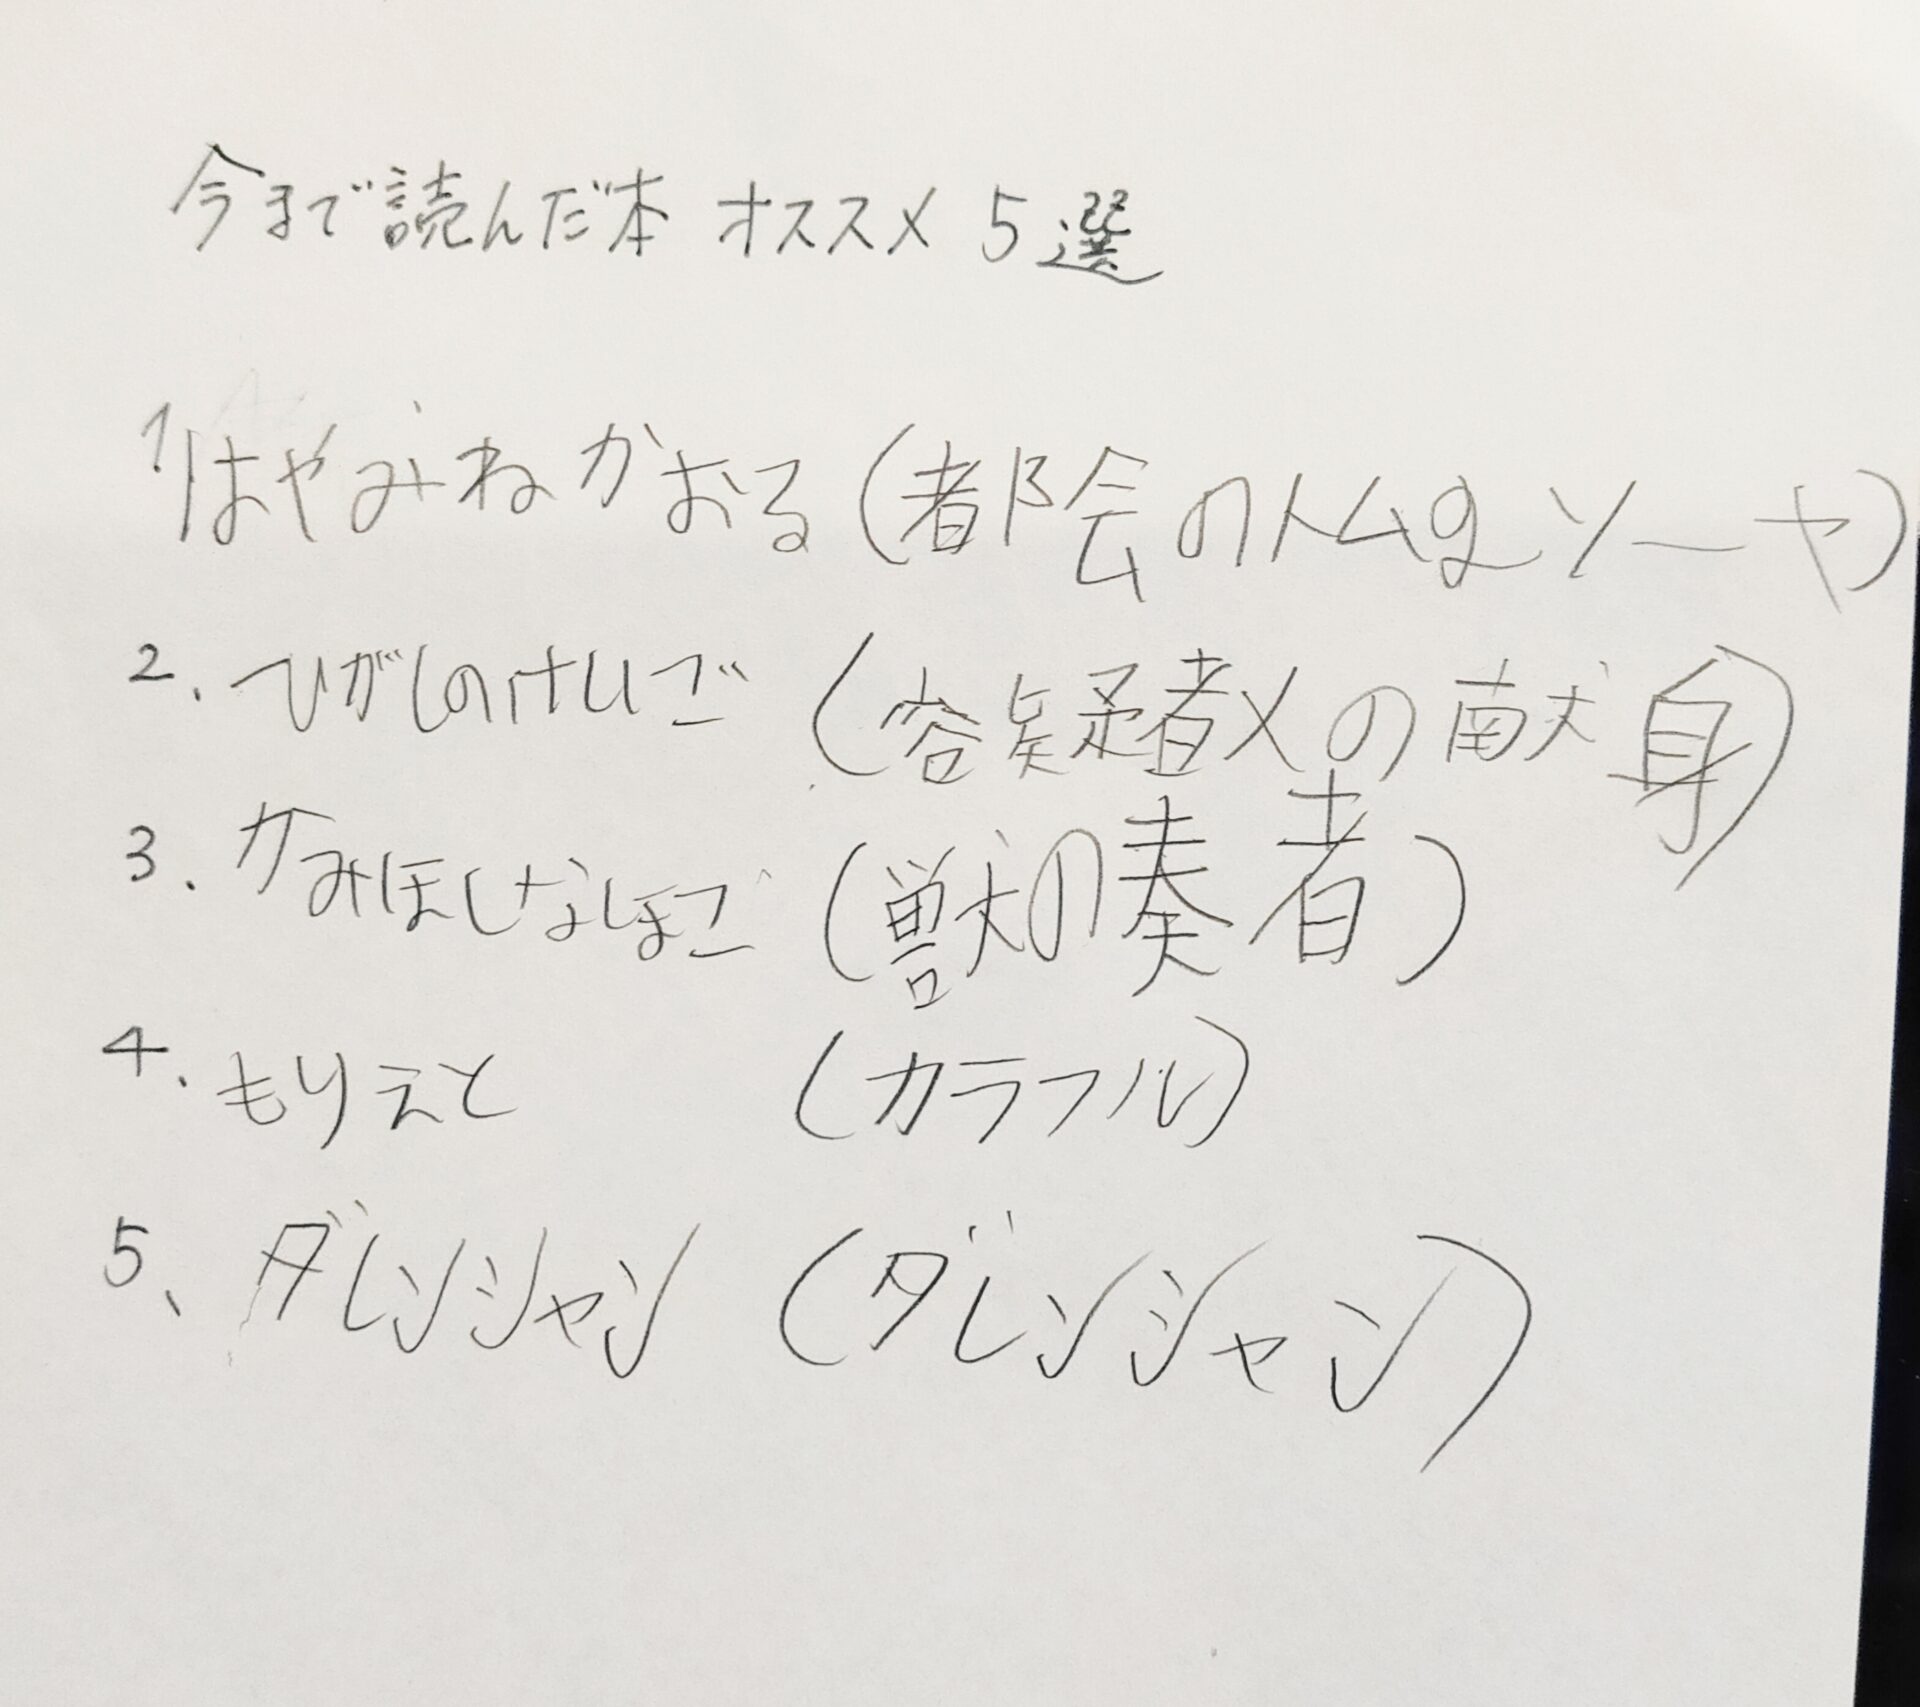 今まで読んだ本 オススメ 5選
1. はやみねかおる (都会のトム&ソーヤ)
2. ひがしのけいご (容疑者Xの献身)
3. かみほしなほこ (獣の奏者)
4. もりえと (カラフル)
5、ダレンシャン (ダレンシャン)